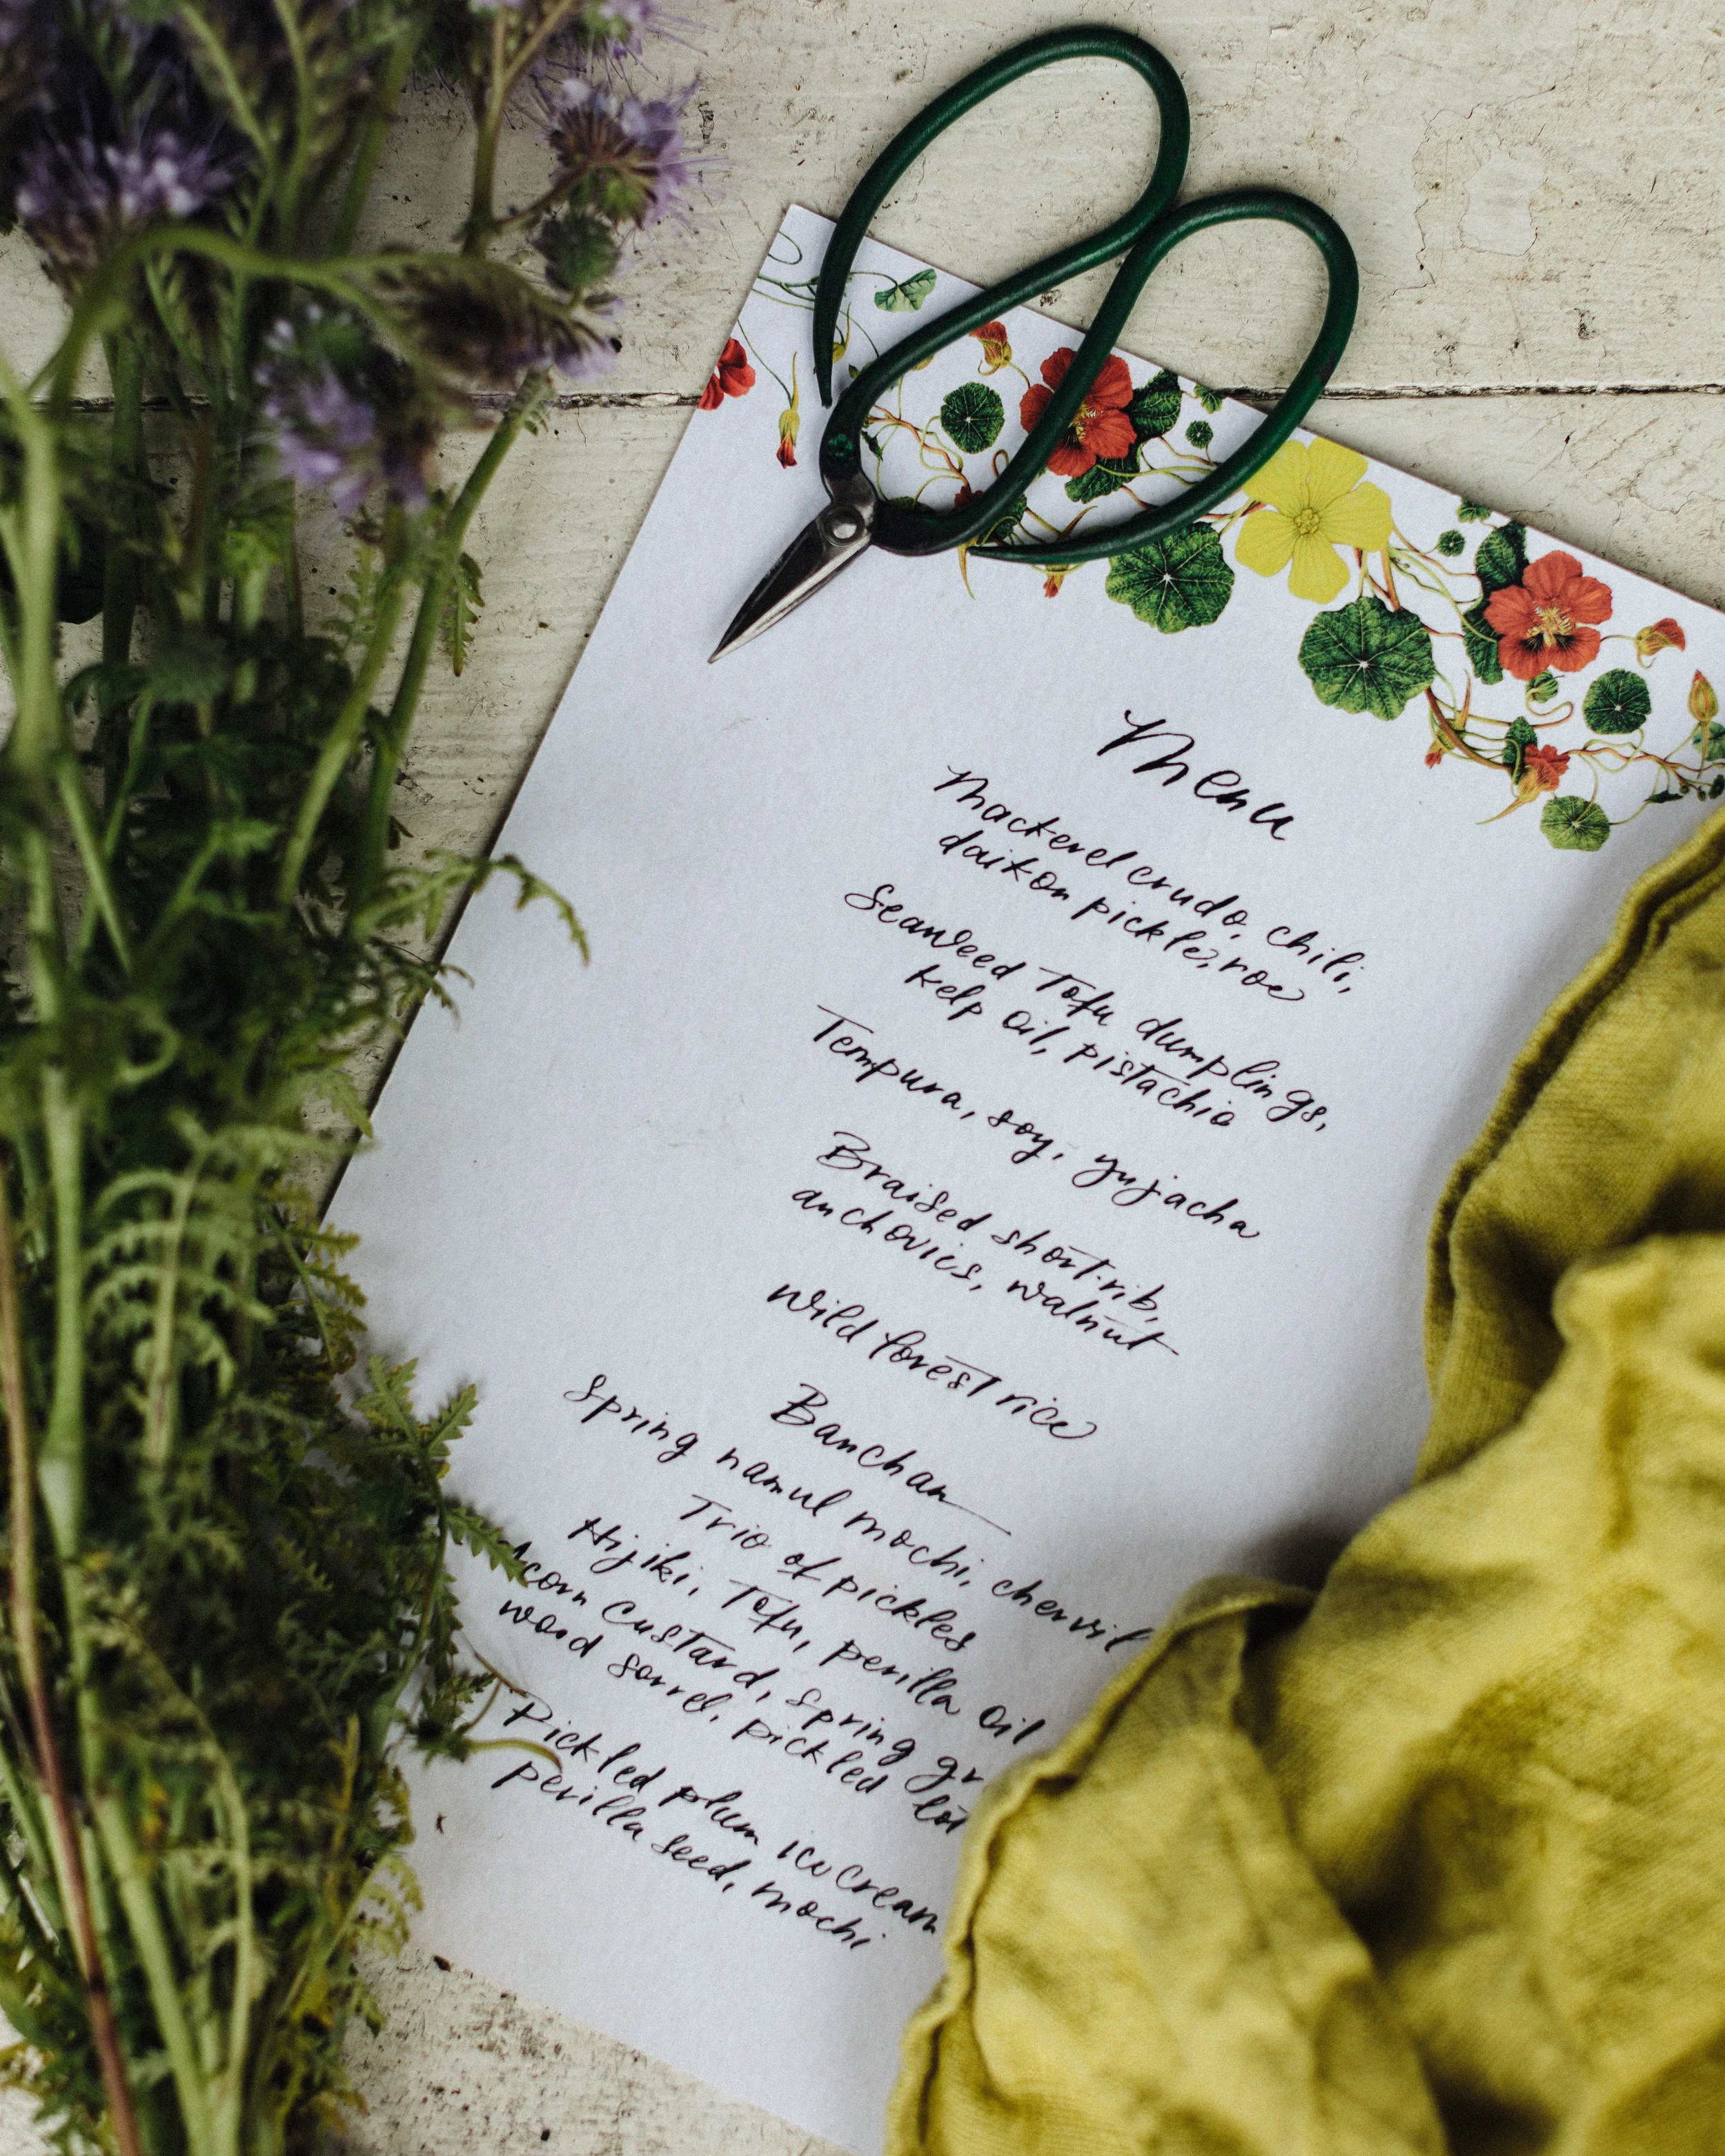 Menu
Mackerel crudo, chili,
daikon pickle, roe
Seaweed Tofu dumplings,
kelp oil, pistachio
Tempura, soy, yujacha
Braised short-rib,
anchovies, walnut
Wild forest rice
Banchan
Spring namul mochi, chervil
Trio of pickles
Hijiki, Tofu, perilla oil
Acorn custard, spring gr
wood sorrel, pickled lot
Pickled plum ice cream
perilla seed, mochi